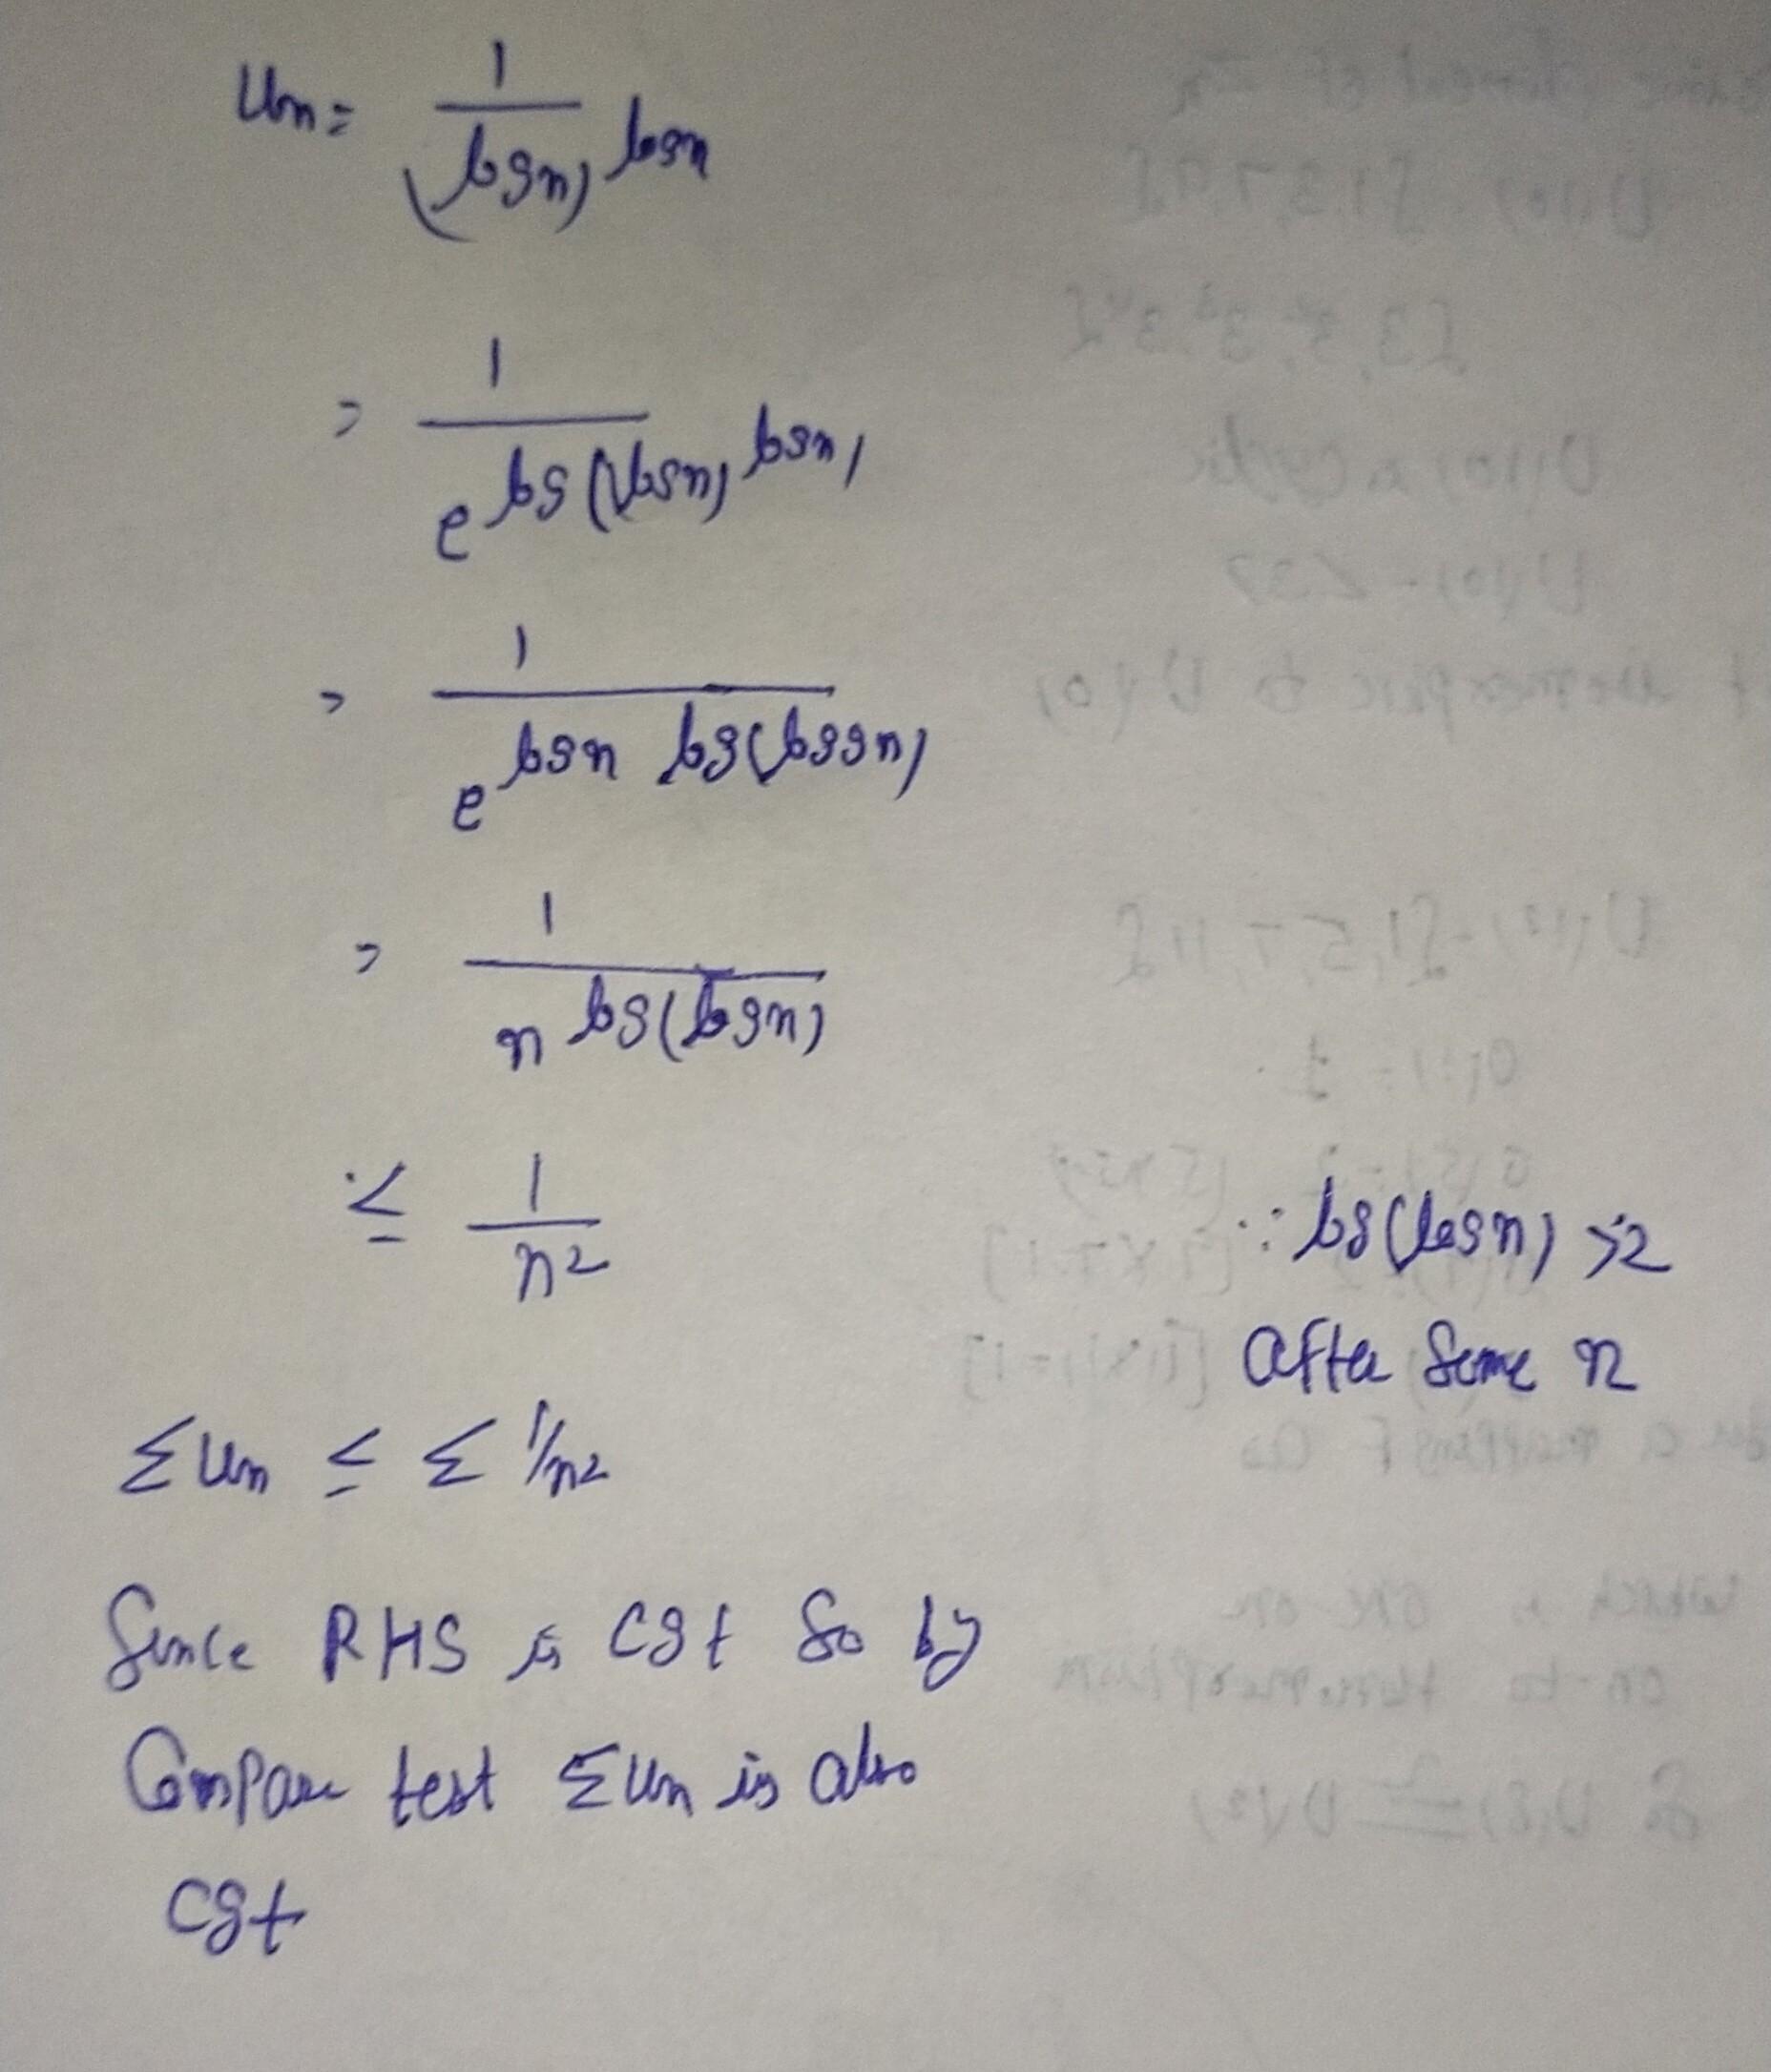 Un = 1/(logn)^logn
= 1/e^log((logn)^logn)
= 1/e^logn log(logn)
= 1/n^log(logn)
≤ 1/n² ∵ log(logn) > 2
After Some n
Σ Un ≤ Σ 1/n²
Since RHS is Cgt So by
Compare test Σ Un is also
Cgt